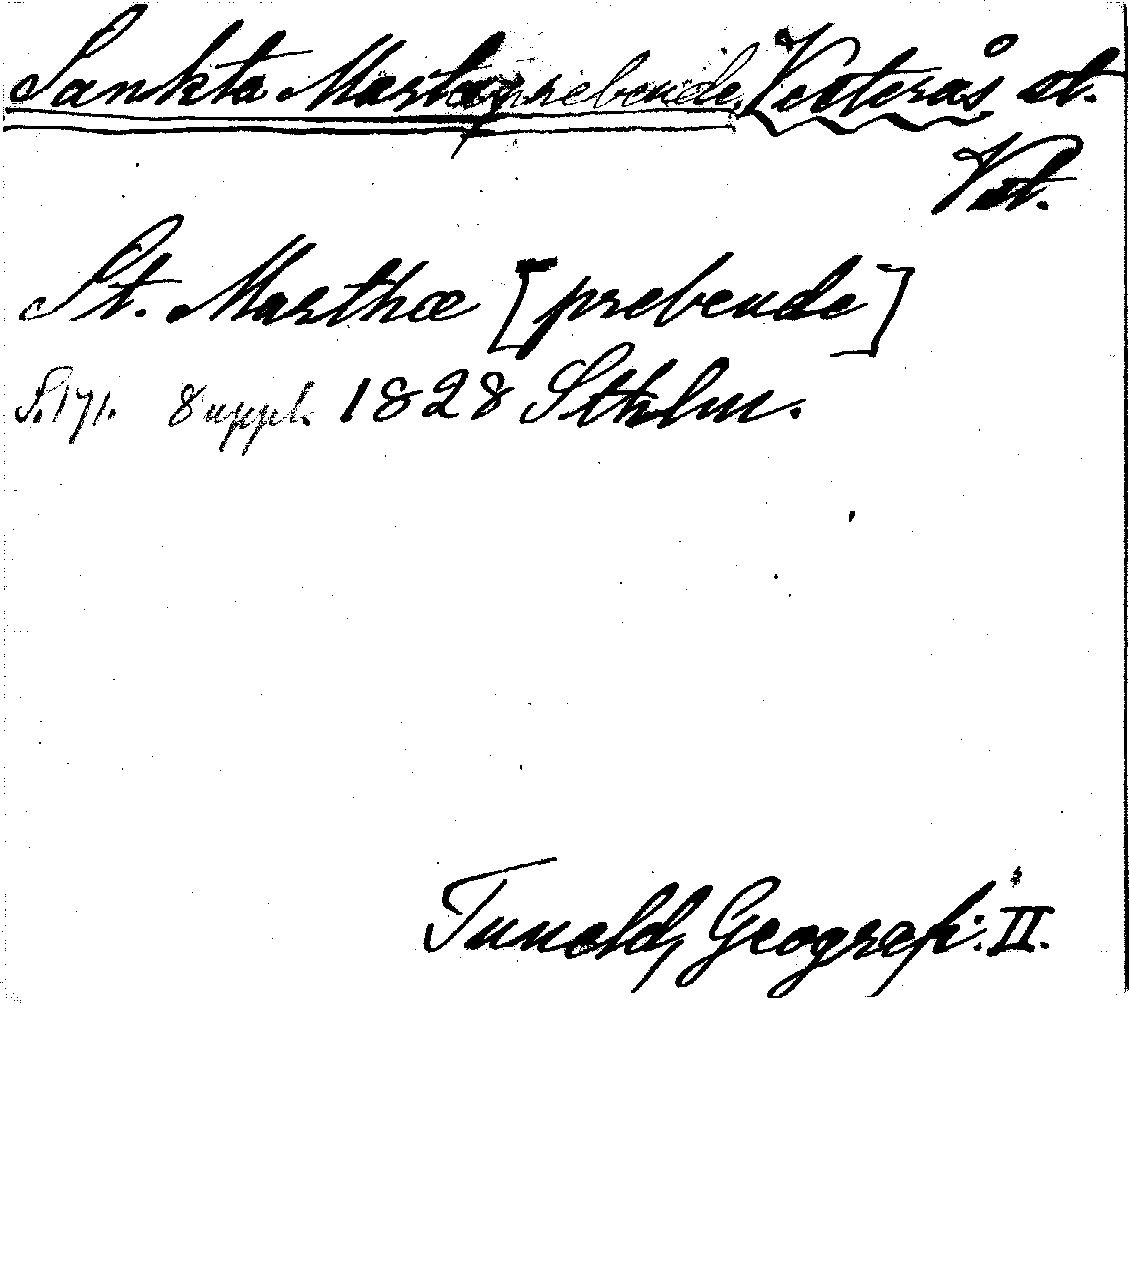 Sankta Marta prebende, Västerås st.
Vstl.
St. Marthæ [prebende]
S. 171. 8 uppl. 1828 Sthlm.
Tunelds Geografi: II.